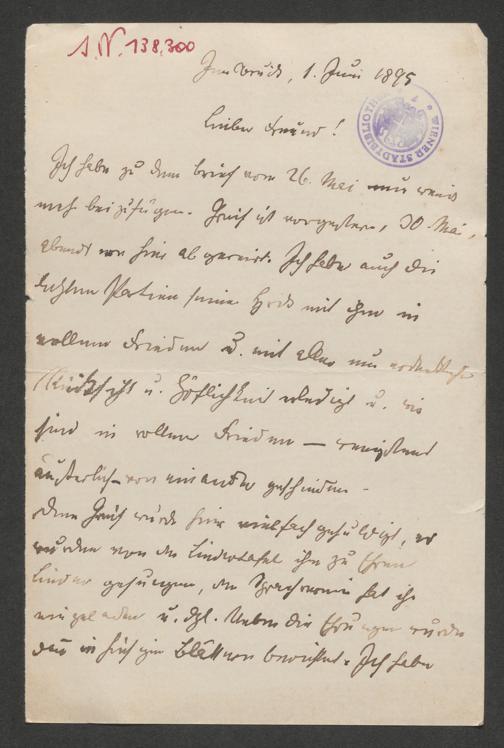 S.N. 138.300
Innsbruck, 1. Juni 1895
WIENER STADTBIBLIOTHEK
Lieber Freund!
Ich habe zu dem Brief vom 26. Mai nur wenig
mehr beizufügen. Greif ist vorgestern, 30 Mai,
abends von hier abgereist. Ich habe auch die
letzten Partien seine mit ihm in
vollem Frieden u. mit aller nur erdenklichen
Rücksicht u. Höflichkeit erledigt u. wir
sind in vollem Frieden — wenigstens
äußerlich – von einander geschieden –
Dem Greif wurde hier vielfach gehuldigt, es
wurden von der Liedertafel ihm zu Ehren
Lieder gesungen, der Sprachverein hat ihn
eingeladen u. dgl. Ueber die Ehrungen wurde
in hiesigen Blättern berichtet. Ich habe